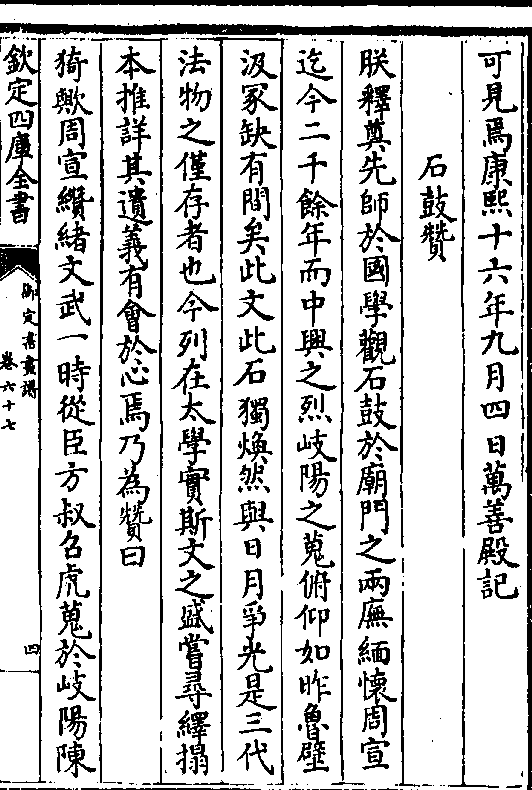 可見焉康熙十六年九月四日萬善殿記
石鼓贊
朕釋奠先師於國學觀石鼓於廟門之兩廡緬懷周宣
迄今二千餘年而中興之烈岐陽之蒐俯仰如昨魯壁
汲冢缺有間矣此文此石獨煥然與日月爭光是三代
法物之僅存者也今列在太學實斯文之盛嘗尋繹搨
本推詳其遺義有會於心焉乃為贊曰
猗歟周宣纘緒文武一時從臣方叔召虎蒐於岐陽陳
欽定四庫全書
御定書畫譜
卷六十七
四